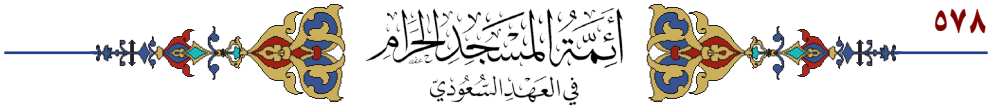 ٥٧٨
أَئِمَّةُ المَسْجِدِ الحَرَامِ
في العَهْدِ السُّعُودِيّ